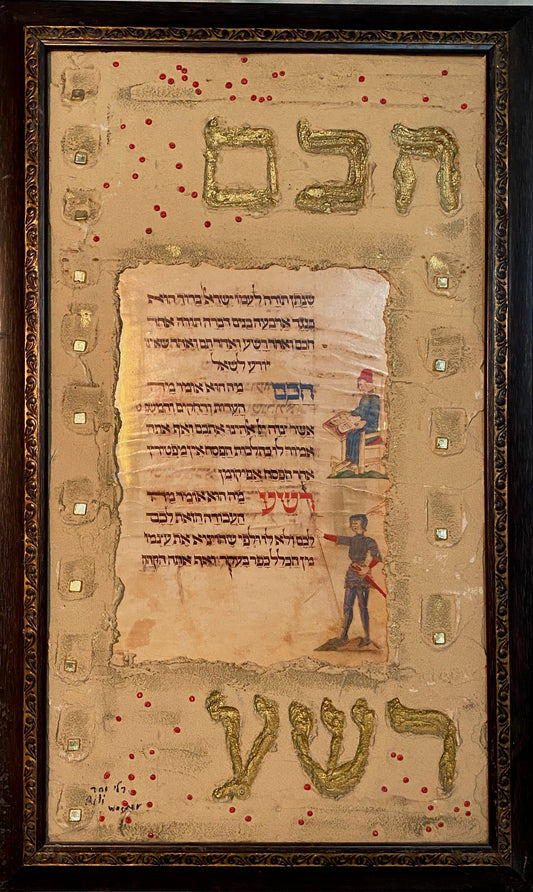 חכם
שנתן תורה לעמו ישראל ברוך הוא
כנגד ארבעה בנים דברה תורה אחד
חכם ואחד רשע ואחד תם ואחד שאינו
יודע לשאל
חכם מה הוא אומר מה
העדות והחקים והמשפטי
אשר צוה אלהינו אתכם ואף אתה
אמור לו כהלכות הפסח אין מפטירין
אחר הפסח אפיקומן
רשע מה הוא אומר מה
העבודה הזאת לכם
לכם ולא לו ולפי שהוציא את עצמו
מן הכלל כפר בעקר ואף אתה הקהה
רשע
רלי